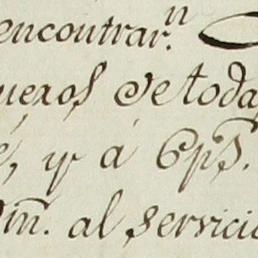 encontrar.n
uexos de toda
é, y á 6ps.
m. al servicio